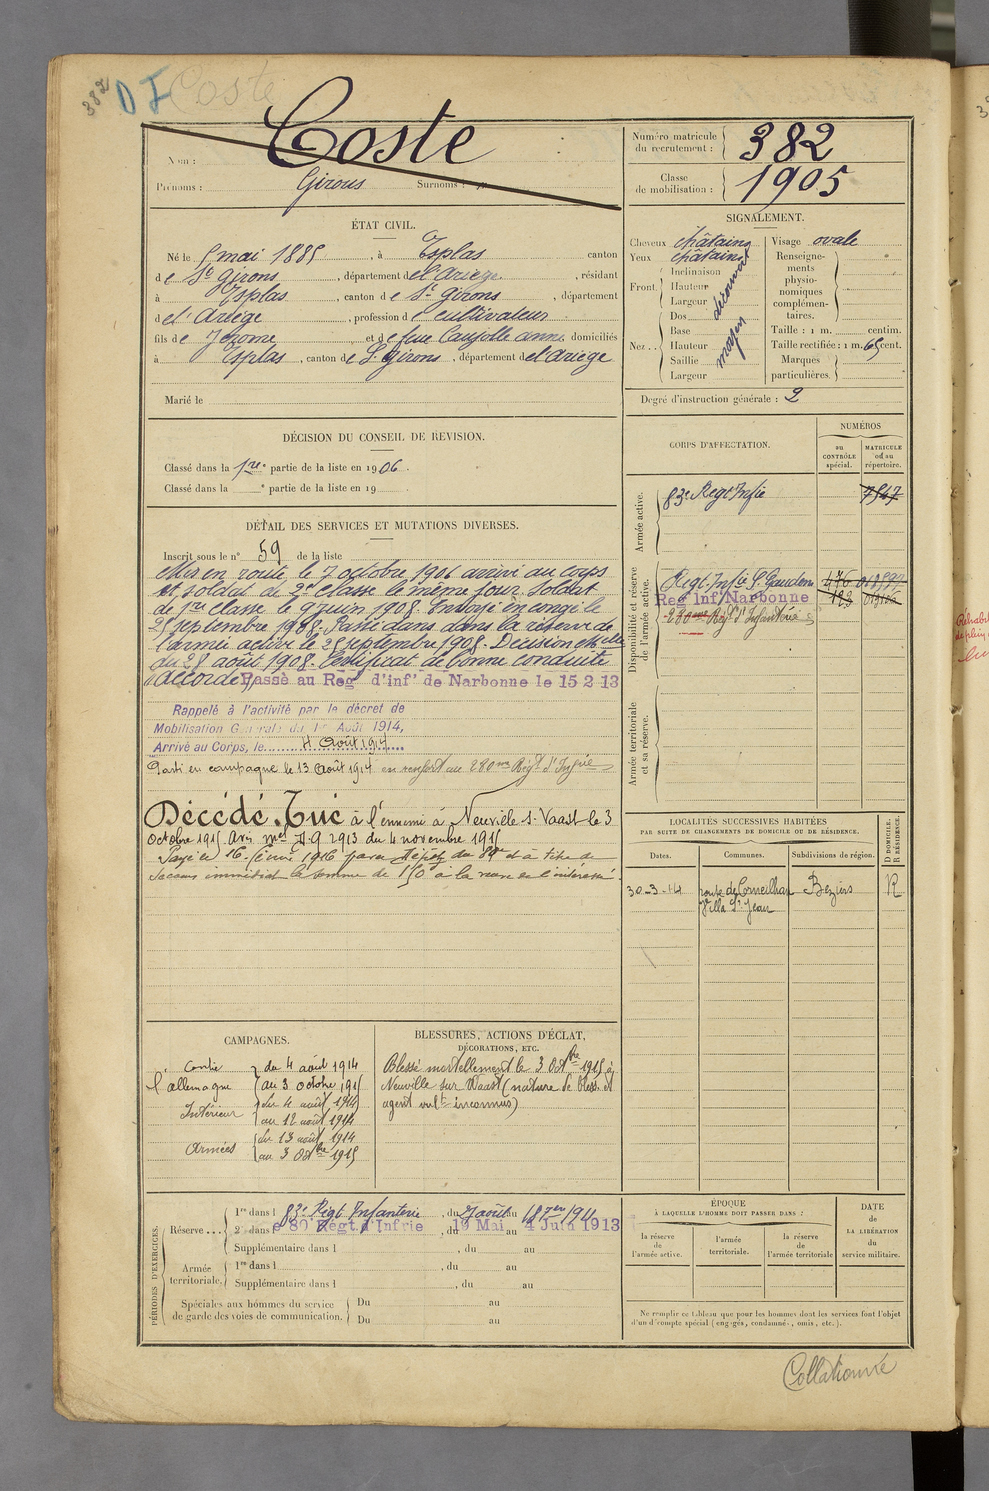 382 DJ Coste
Coste
Nom :
Prénoms : Girons Surnoms : "
Numéro matricule du recrutement : 382
Classe de mobilisation : 1905
ÉTAT CIVIL.
Né le 5 mai 1885, à Esplas canton
de St Girons, département de l'Ariège, résidant
à Esplas, canton de St Girons, département
de l'Ariège, profession de cultivateur
fils de Jérome et de feue Caujolle anne domiciliés
à Esplas, canton de St Girons, département de l'Ariège
Marié le
SIGNALEMENT.
Cheveux châtains
Yeux châtains
Front. Inclinaison
Hauteur
Largeur
Nez.. Dos
Base
Hauteur
Saillie
Largeur
moyen
Visage ovale
Renseigne-
ments
physio-
nomiques
complémen-
taires.
Taille : 1 m. centim.
Taille rectifiée : 1 m. 65 cent.
Marques
particulières.
Degré d'instruction générale : 2
DÉCISION DU CONSEIL DE REVISION.
Classé dans la 1re partie de la liste en 1906.
Classé dans la e partie de la liste en 19
CORPS D'AFFECTATION.
NUMÉROS
au
CONTRÔLE
spécial.
MATRICULE
ou au
répertoire.
Armée active.
83e Regt Infie 7547
Disponibilité et réserve
de l'armée active.
Regt. Infie St Gaudens 476
Reg' inf' Narbonne 123
280me Régt d'Infanterie
Armée territoriale
et sa réserve.
DÉTAIL DES SERVICES ET MUTATIONS DIVERSES.
Inscrit sous le n° 59 de la liste
Mis en route le 7 octobre 1906 arrivé au corps
et soldat de 2e classe le même jour. Soldat
de 1re classe le 9 juin 1908. Envoyé en congé le
25 septembre 1908. Passé dans dans la réserve de
l'armée active le 25 septembre 1908. Décision Mlle
du 28 août 1908. Certificat de bonne conduite
"accordé". Passé au Reg' d'inf' de Narbonne le 15 2 13
Rappelé à l'activité par le décret de
Mobilisation Générale du 1er Août 1914,
Arrivé au Corps, le 4 Août 1914
Parti en campagne le 13 Août 1914 en renfort au 280me Régt d'Infie
Décédé. Tué à l'ennemi à Neuville St Vaast le 3
Octobre 1915 Avis mel 2913 du 4 novembre 1915
Payé le 16 février 1916 par le Dépôt du à titre de
secours immédiat la somme de 150 f à la veuve de l'intéressé
LOCALITÉS SUCCESSIVES HABITÉES
PAR SUITE DE CHANGEMENTS DE DOMICILE OU DE RÉSIDENCE.
Dates. Communes. Subdivisions de région. D DOMICILE. R RÉSIDENCE.
30-3-14 route de Corneilhan Beziers R
Villa St Jean
CAMPAGNES.
Contre du 4 août 1914
l'allemagne au 3 octobre 1915
Intérieur du 4 août 1914
au 12 août 1914
Armées du 13 août 1914
au 3 Octbre 1915
BLESSURES, ACTIONS D'ÉCLAT,
DÉCORATIONS, ETC.
Blessé mortellement le 3 Octbre 1915 à
Neuville sur Vaast (nature de bless. et
agent vult inconnus)
PÉRIODES D'EXERCICES.
Réserve... 1re dans l 83e Régt Infanterie, du août au 1911
2e dans l e 80 Régt. d'Infrie, du 19 Mai au 4 Juin 1913
Supplémentaire dans l , du au
Armée
territoriale.
1re dans l , du au
Supplémentaire dans l , du au
Spéciales aux hommes du service
de garde des voies de communication.
Du au
Du au
ÉPOQUE
À LAQUELLE L'HOMME DOIT PASSER DANS :
la réserve
de
l'armée active.
l'armée
territoriale.
la réserve
de
l'armée territoriale
DATE
de
LA LIBÉRATION
du
service militaire.
Ne remplir ce tableau que pour les hommes dont les services font l'objet
d'un décompte spécial (engagés, condamnés, omis, etc.).
Collationné